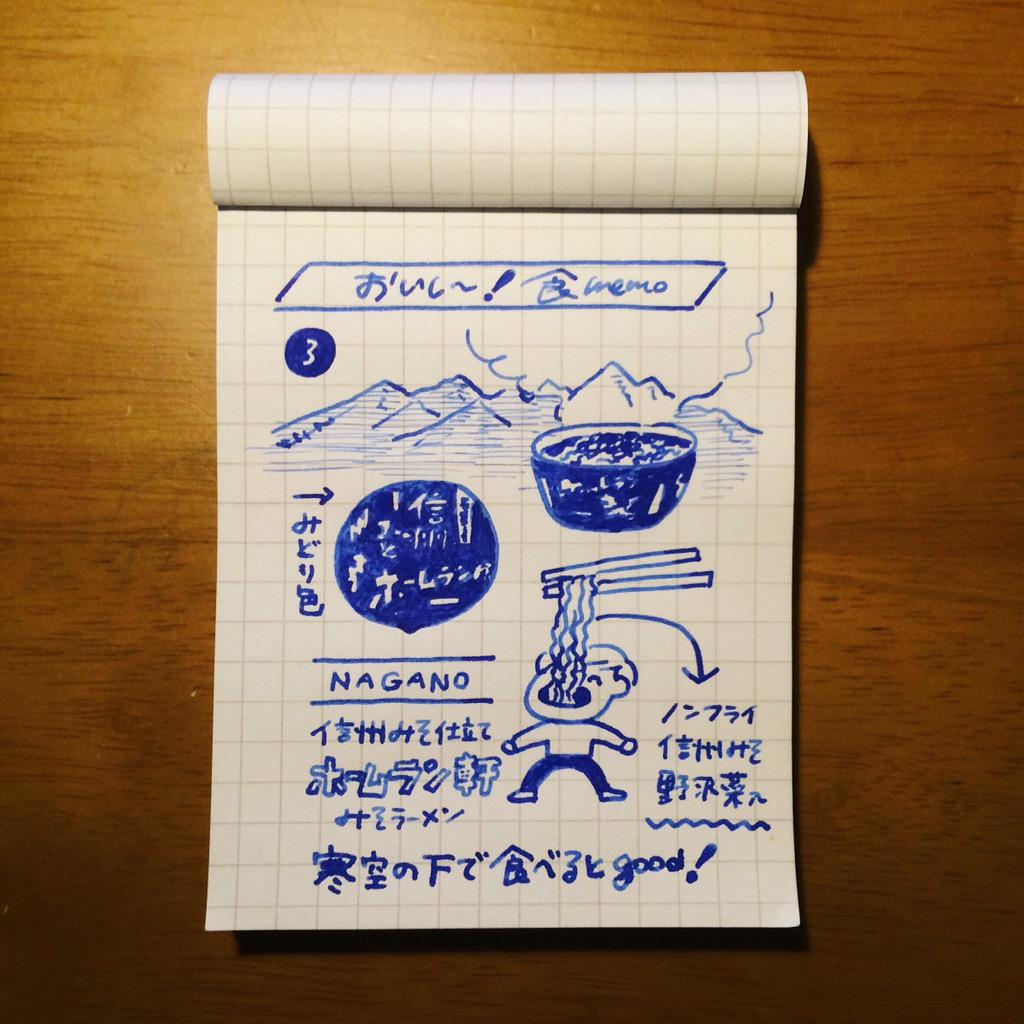 おいし〜！食memo
3
→みどり色
信州
みそ
ホームラン軒
NAGANO
信州みそ仕立て
ホームラン軒
みそラーメン
ノンフライ
信州みそ
野沢菜入
寒空の下で食べるとgood！